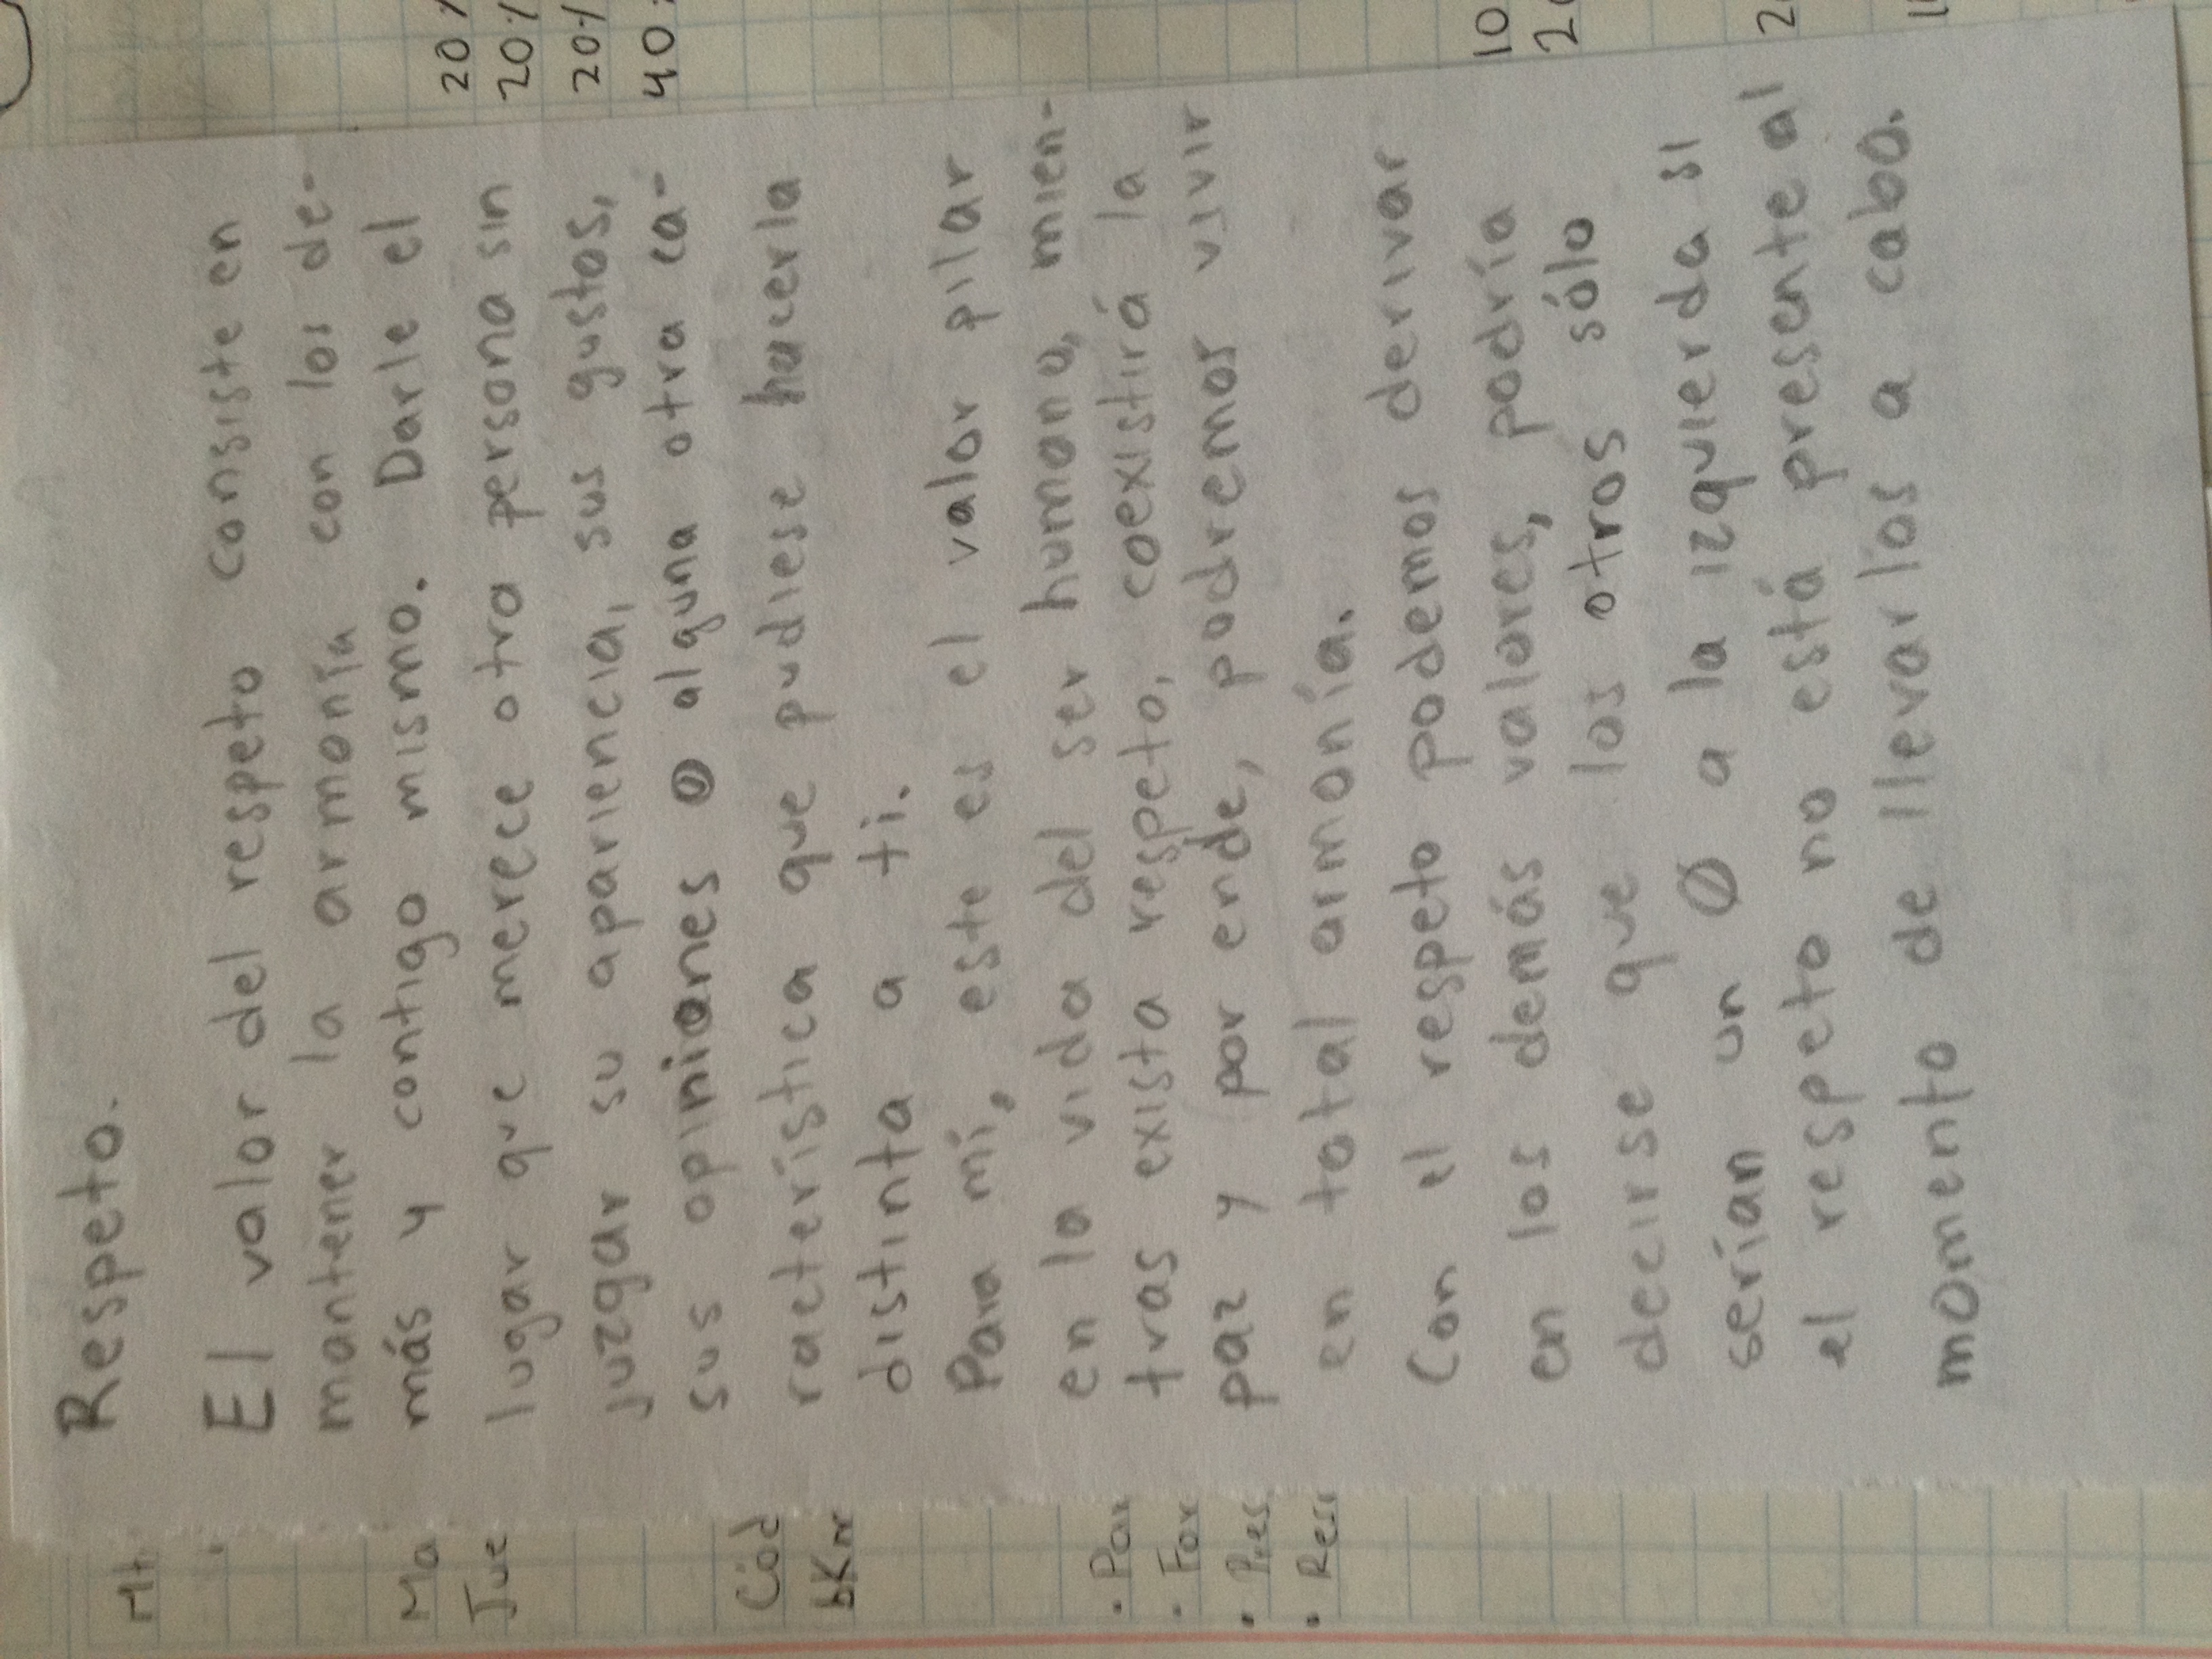 Respeto.
El valor del respeto consiste en
mantener la armonía con los de-
más y contigo mismo. Darle el
lugar que merece otra persona sin
juzgar su apariencia, sus gustos,
sus opiniones o alguna otra ca-
racterística que pudiese hacerla
distinta a ti.
Para mí, este es el valor pilar
en la vida del ser humano, mien-
tras exista respeto, coexistirá la
paz y por ende, podremos vivir
en total armonía.
Con el respeto podemos derivar
en los demás valores, podría
decirse que los otros sólo
serían un Ø a la izquierda si
el respeto no está presente al
momento de llevarlos a cabo.
Ma
Jue
Cód
• Par
• For
• Pres
20%
20%
20%
40
10